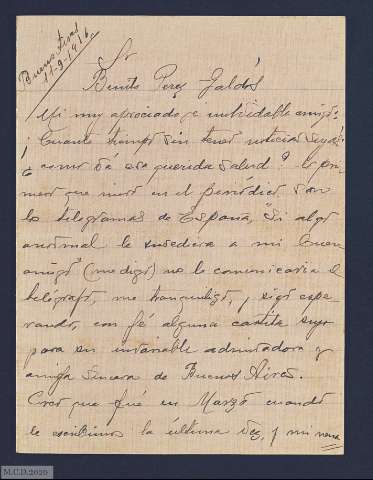 Buenos Aires
11-9-1916.
Sr
Benito Perez Galdós
Mi muy apreciado é inolvidable amigo:
¡Cuanto tiempo sin tener noticias suyas!
¿como vá esa querida salud? lo pri-
mero que miro en el periódico son
los telegramas de España, "Si algo
anormal le sucediera a mi buen
amigo (me digo) no lo comunicaria el
telégrafo, me tranquilizo, y sigo espe-
rando, con fé alguna cartita suya
para su invariable admiradora y
amiga sincera de Buenos Aires.
Creo que fué en Marzo cuando
le escribimos la última vez, y mi
M.C.D.2020